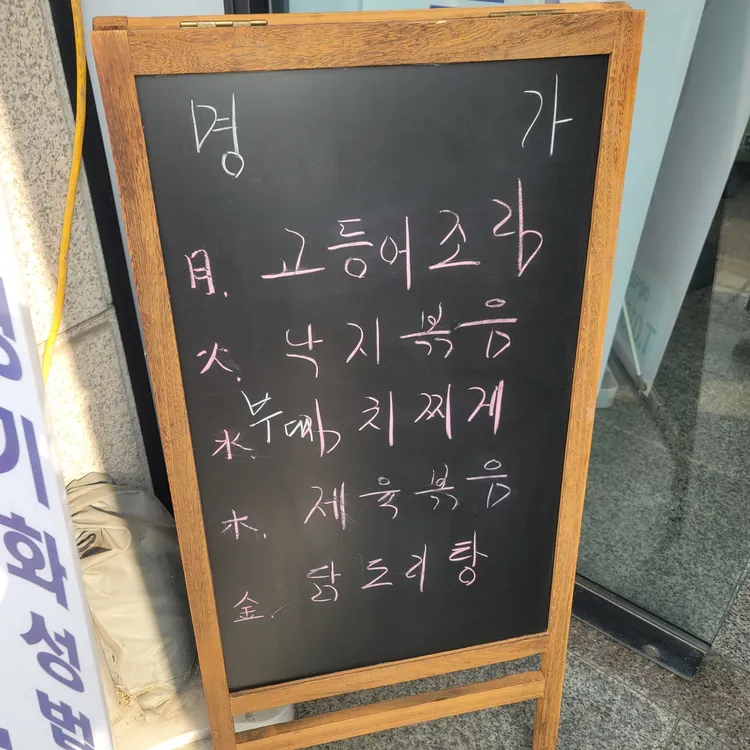 명 가
月. 고등어조림
火. 낙지볶음
水. 부대 치찌게
木. 제육볶음
金. 닭도리탕
기화성